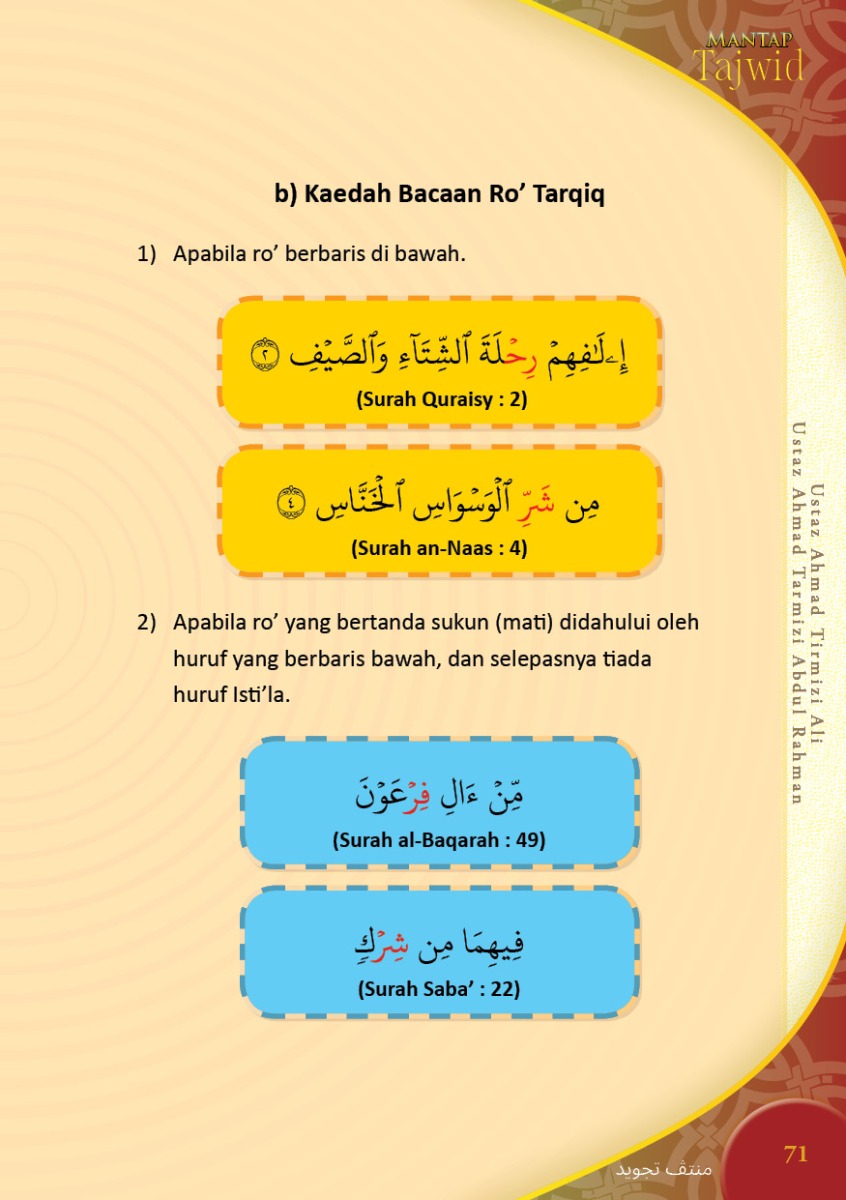 MANTAP
Tajwid
b) Kaedah Bacaan Ro’ Tarqiq
1) Apabila ro’ berbaris di bawah.
إِۦلَٰفِهِمۡ رِحۡلَةَ ٱلشِّتَآءِ وَٱلصَّيۡفِ ٢
(Surah Quraisy : 2)
مِن شَرِّ ٱلۡوَسۡوَاسِ ٱلۡخَنَّاسِ ٤
(Surah an-Naas : 4)
2) Apabila ro’ yang bertanda sukun (mati) didahului oleh
huruf yang berbaris bawah, dan selepasnya tiada
huruf Isti’la.
مِّنۡ ءَالِ فِرۡعَوۡنَ
(Surah al-Baqarah : 49)
فِيهِمَا مِن شِرۡكٖ
(Surah Saba’ : 22)
Ustaz Ahmad Tirmizi Ali
Ustaz Ahmad Tarmizi Abdul Rahman
منتڤ تجويد
71